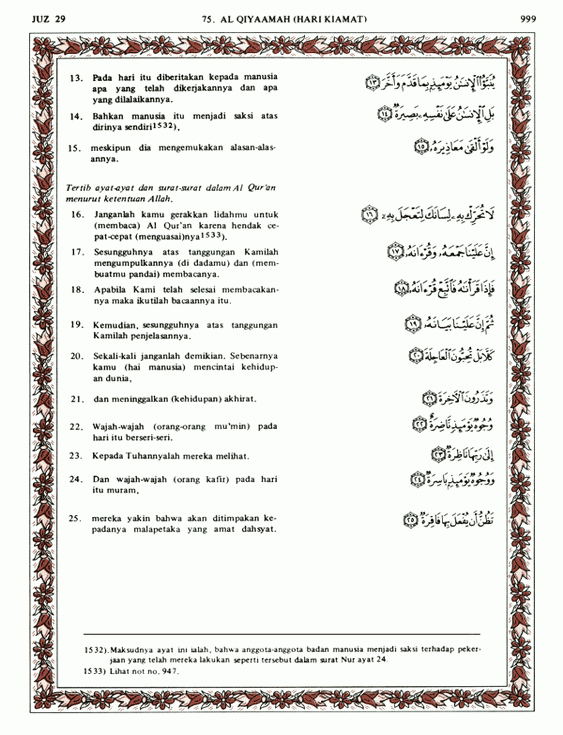 JUZ 29 75. AL QIYAAMAH (HARI KIAMAT) 999
13. Pada hari itu diberitakan kepada manusia
apa yang telah dikerjakannya dan apa
yang dilalaikannya.
يُنَبَّؤُا۟ ٱلْإِنسَٰنُ يَوْمَئِذٍۭ بِمَا قَدَّمَ وَأَخَّرَ ﴿١٣﴾
14. Bahkan manusia itu menjadi saksi atas
dirinya sendiri1532),
بَلِ ٱلْإِنسَٰنُ عَلَىٰ نَفْسِهِۦ بَصِيرَةٌ ﴿١٤﴾
15. meskipun dia mengemukakan alasan-alas-
annya.
وَلَوْ أَلْقَىٰ مَعَاذِيرَهُۥ ﴿١٥﴾
Tertib ayat-ayat dan surat-surat dalam Al Qur'an
menurut ketentuan Allah.
16. Janganlah kamu gerakkan lidahmu untuk
(membaca) Al Qur'an karena hendak ce-
pat-cepat (menguasai)nya1533).
لَا تُحَرِّكْ بِهِۦ لِسَانَكَ لِتَعْجَلَ بِهِۦٓ ﴿١٦﴾
17. Sesungguhnya atas tanggungan Kamilah
mengumpulkannya (di dadamu) dan (mem-
buatmu pandai) membacanya.
إِنَّ عَلَيْنَا جَمْعَهُۥ وَقُرْءَانَهُۥ ﴿١٧﴾
18. Apabila Kami telah selesai membacakan-
nya maka ikutilah bacaannya itu.
فَإِذَا قَرَأْنَٰهُ فَٱتَّبِعْ قُرْءَانَهُۥ ﴿١٨﴾
19. Kemudian, sesungguhnya atas tanggungan
Kamilah penjelasannya.
ثُمَّ إِنَّ عَلَيْنَا بَيَانَهُۥ ﴿١٩﴾
20. Sekali-kali janganlah demikian. Sebenarnya
kamu (hai manusia) mencintai kehidup-
an dunia,
كَلَّا بَلْ تُحِبُّونَ ٱلْعَاجِلَةَ ﴿٢٠﴾
21. dan meninggalkan (kehidupan) akhirat.
وَتَذَرُونَ ٱلْءَاخِرَةَ ﴿٢١﴾
22. Wajah-wajah (orang-orang mu'min) pada
hari itu berseri-seri.
وُجُوهٌ يَوْمَئِذٍ نَّاضِرَةٌ ﴿٢٢﴾
23. Kepada Tuhannyalah mereka melihat.
إِلَىٰ رَبِّهَا نَاظِرَةٌ ﴿٢٣﴾
24. Dan wajah-wajah (orang kafir) pada hari
itu muram,
وَوُجُوهٌ يَوْمَئِذٍۭ بَاسِرَةٌ ﴿٢٤﴾
25. mereka yakin bahwa akan ditimpakan ke-
padanya malapetaka yang amat dahsyat.
تَظُنُّ أَن يُفْعَلَ بِهَا فَاقِرَةٌ ﴿٢٥﴾
1532). Maksudnya ayat ini ialah, bahwa anggota-anggota badan manusia menjadi saksi terhadap peker-
jaan yang telah mereka lakukan seperti tersebut dalam surat Nur ayat 24.
1533) Lihat not no. 947.